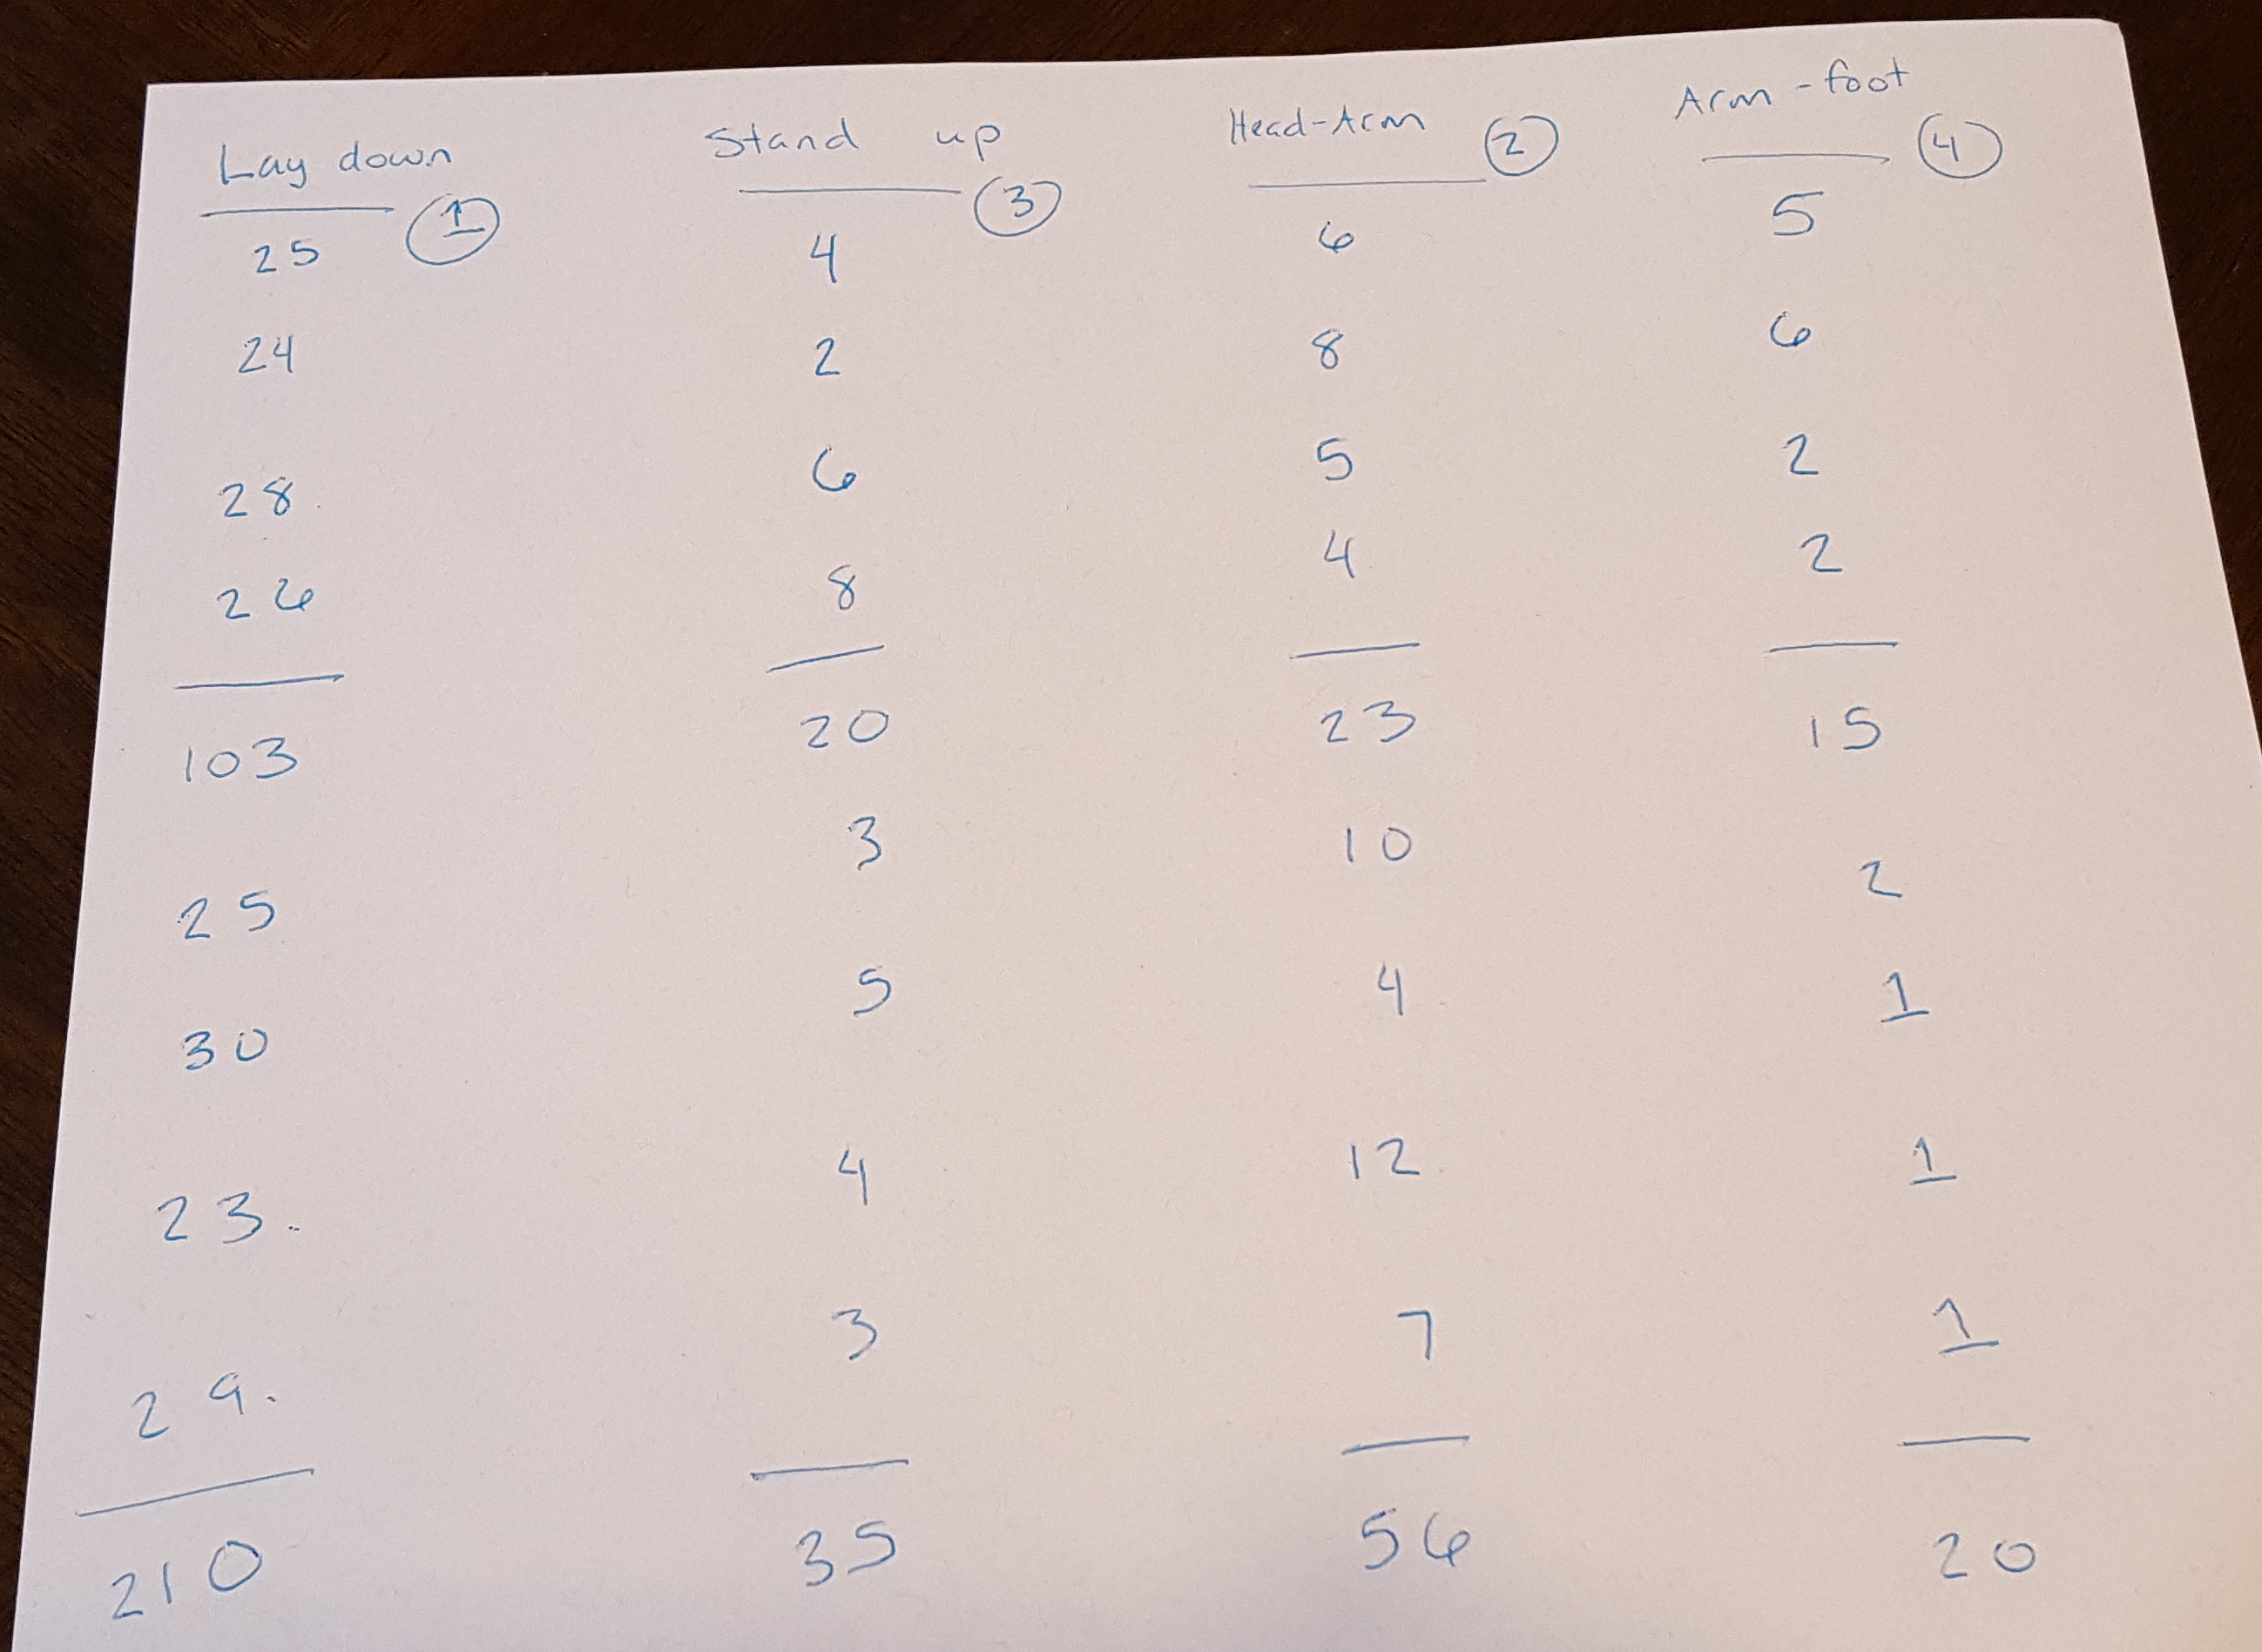 Lay down Stand up Head-Arm Arm-foot
1 3 2 4
25 4 6 5
24 2 8 6
28. 6 5 2
26 8 4 2
103 20 23 15
25 3 10 2
30 5 4 1
23. 4 12 1
29. 3 7 1
210 35 56 20